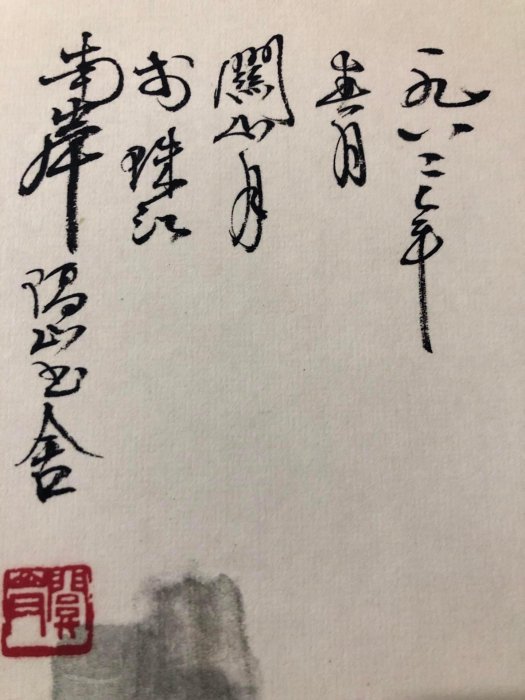 一九八二年
春月
關山月
於珠江
南岸隔山書舍
關山月